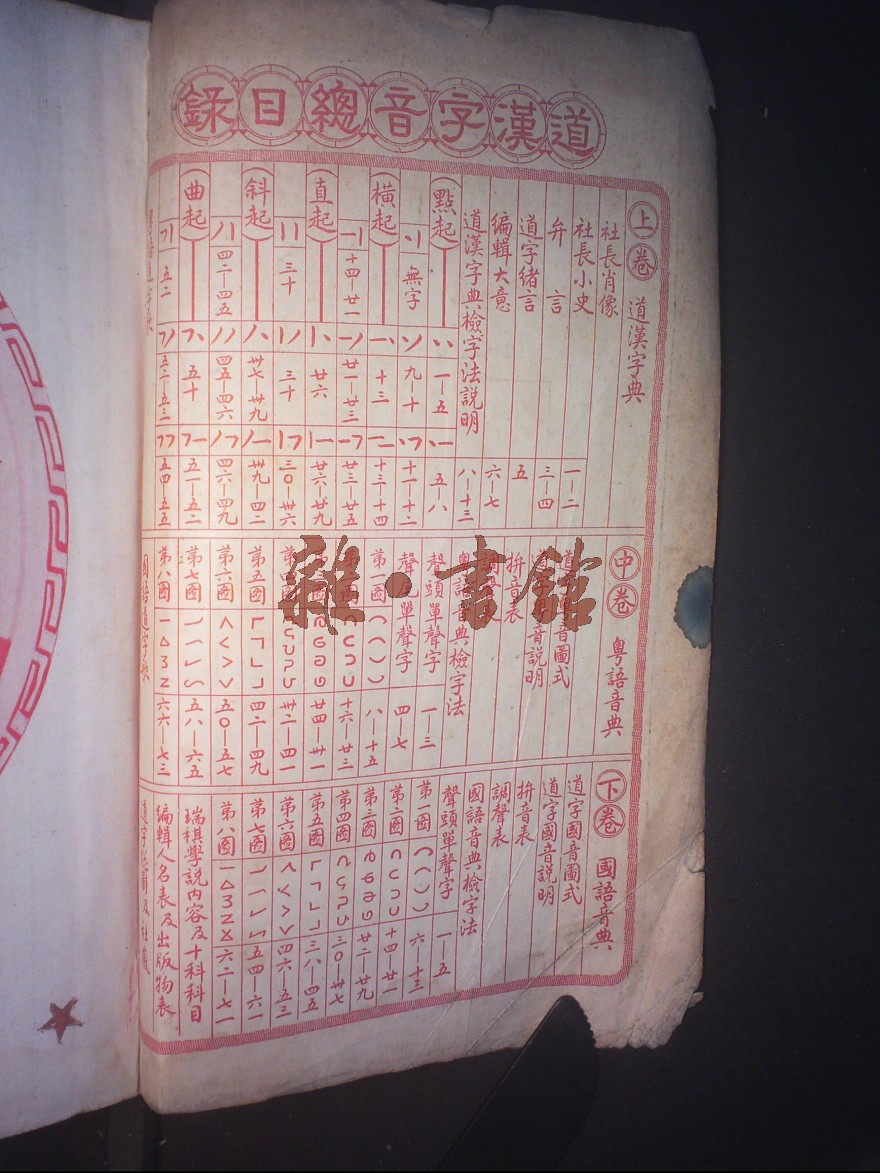 道漢字音總目錄
上卷 道漢字典
社長肖像
社長小史
弁言 一—二
道字緒言 三—四
編輯大意 五
道漢字典檢字法說明 六—七
點起
無字
九—十
一—五
五—八
八—十三
橫起
十四—廿一
十三
廿一—廿三
十一—十二
十三—十四
廿三—廿五
直起
三十
廿六
三十
廿六—廿九
三〇—卅六
斜起
四二—四五
卅七—卅九
四五—四六
卅九—四二
四六—四九
曲起
五二
五十
五二—五三
五一—五二
五四—五五
中卷 粵語音典
拚音表
粵語音典檢字法
聲頭單聲字 一—三
四—七
第一圖 八—十五
十六—廿三
廿四—卅一
卅二—四一
第五圖 四二—四九
第六圖 五〇—五七
第七圖 五八—六五
第八圖 六六—七三
國語道字歌
下卷 國語音典
道字國音圖式
道字國音說明
拚音表
調聲表
國語音典檢字法
聲頭單聲字 一—五
第一圖 六—十三
第二圖 十四—廿一
第三圖 廿二—廿九
第四圖 三〇—卅七
第五圖 三八—四五
第六圖 四六—五三
第七圖 五四—六一
第八圖 六二—七一
瑞祺學說內容及十科科目
編輯人名表及出版物表
雜·書館